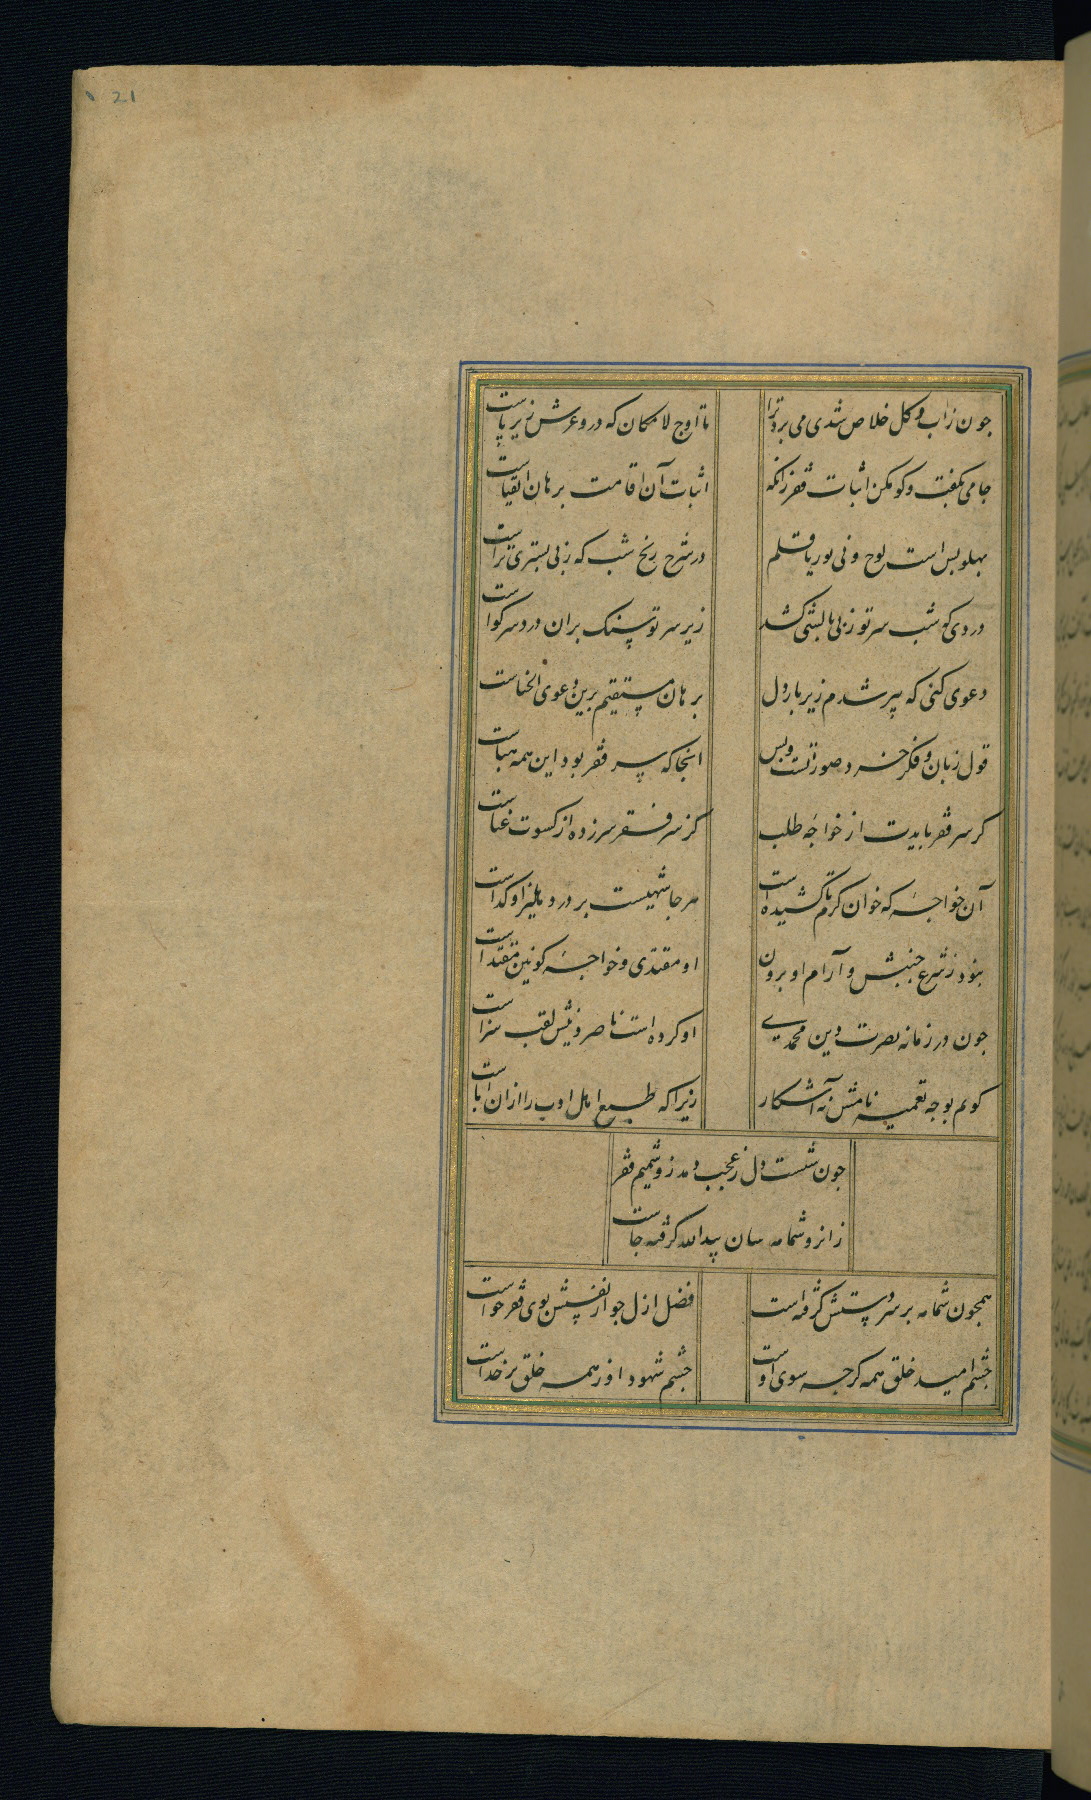 21
جون زاب و کل خلاص شدی می برد ترا تا اوج لامکان که درو عرش زیر پاست
جامی بکفت وکو مکن اثبات فقر زانکه اثبات آن اقامت برهان انقیاست
بهلو بس است لوح و نی بوریا قلم در شرح رنج شب که ز بی بستری تراست
دردی که شب سر تو ز بی بالشی کشد زیر سر تو سنک بران درد سر کواست
دعوی کنی که پیر شدم زیر بار دل برهان مستقیم برین دعوی انحناست
قول زبان و فکر خرد صورتست و بس انجا که سر فقر بود این همه هباست
کر سر فقر بایدت از خواجه طلب کز سر فقر سر زده از کسوت غناست
آن خواجه که خوان کرم تا کشیده است هر جا شهیست بر در دهلیز او کداست
نبود ز شرع جنبش و آرام او برون او مقتدی و خواجه کونین مقتداست
جون در زمانه نصرت دین محمدی او کرده است ناصر دینش لقب سزاست
کویم بوجه تعمیه نامش نه آشکار زیرا که طبع اهل ادب را ازان اباست
جون شست دل ز عجب دمد زو شمیم فقر
زانرو شمامه سان بید الله کرفته جاست
همجون شمامه بر سر دستش کرفته است فضل ازل جو از نفسش بوی فقر خواست
جشم امید خلق همه کرجه سوی اوست جشم شهود او ز همه خلق بر خداست